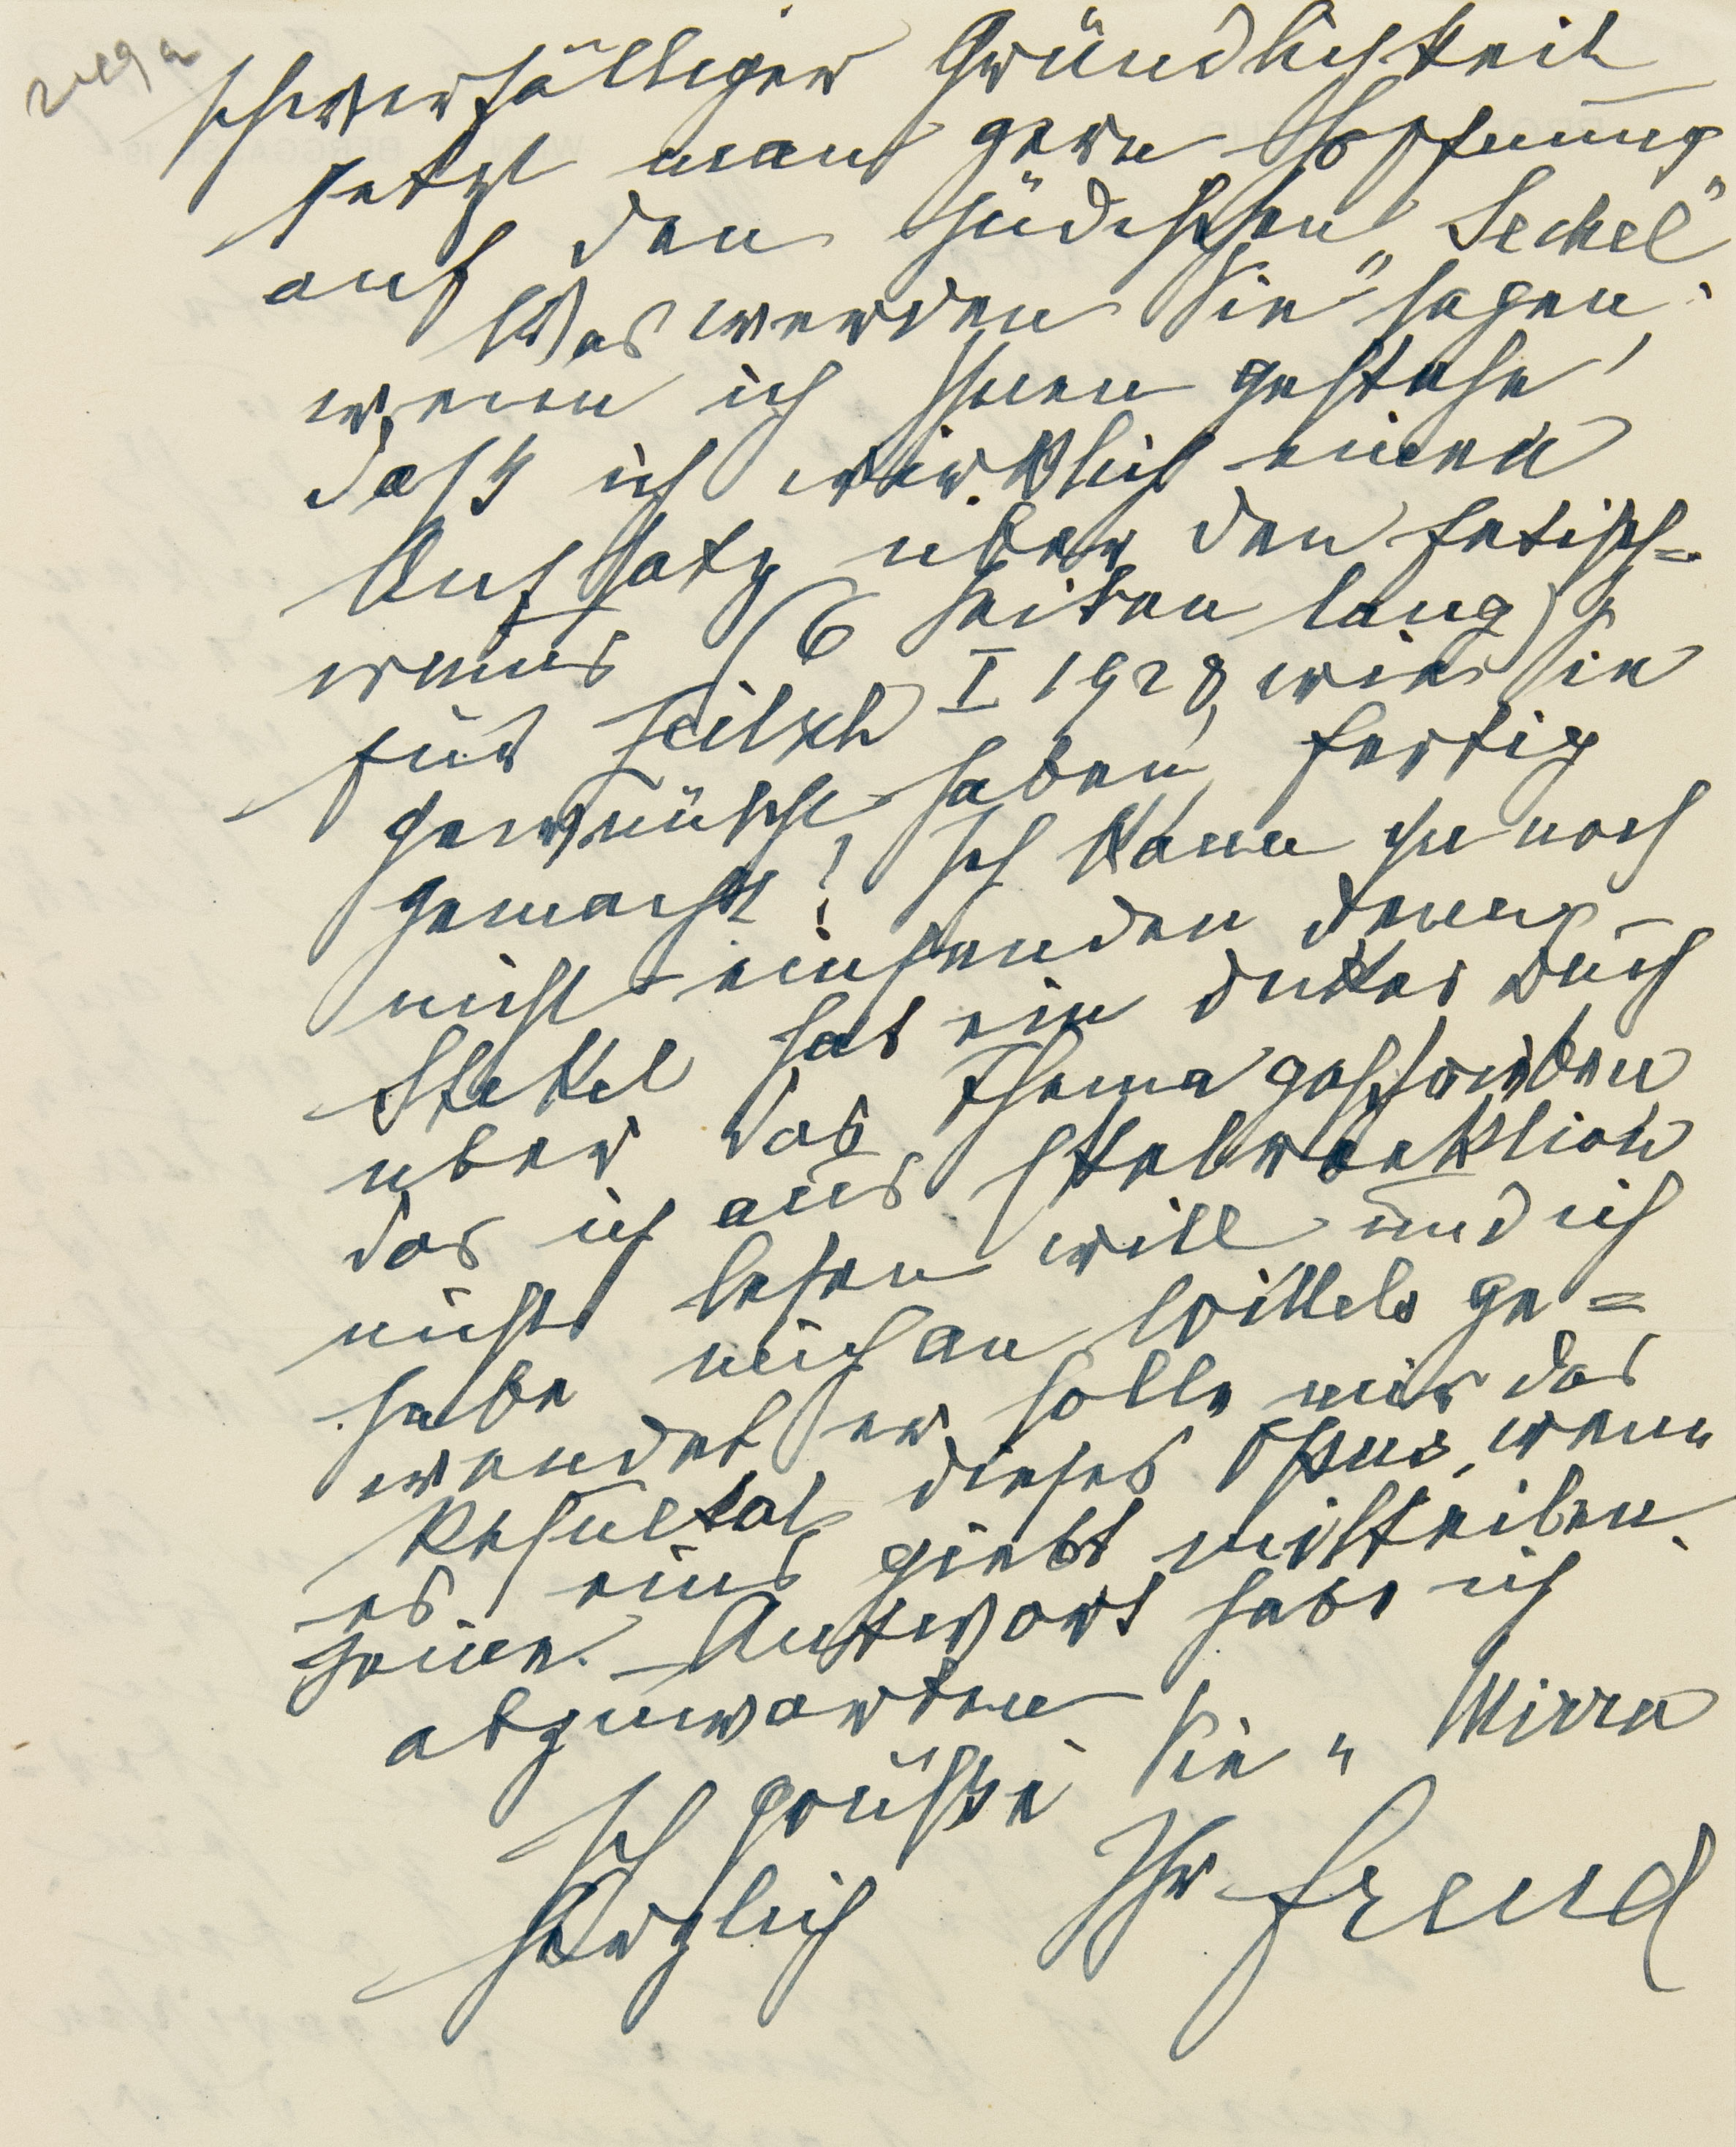 schwerfälliger Gründlichkeit
setzt man gern Hoffnung
auf den jüdischen „Sechel"
Was werden Sie sagen,
wenn ich Ihnen gestehe,
daß ich wirklich einen
Aufsatz über den Fetisch=
ismus (6 Seiten lang)
für Zeitsch I 1928, wie Sie
gewünscht haben, fertig
gemacht! Ich kann ihn noch
nicht einsenden denn
Stekel hat ein dickes Buch
über das Thema geschrieben
das ich aus
nicht lesen will und ich
habe mich an Wittels ge=
wendet er solle mir das
Resultat dieses Opus, wenn
es eins giebt mitteilen.
Seine Antwort habe ich
abzuwarten
Ich grüße Sie u Mirra
herzlich
Ihr Freud